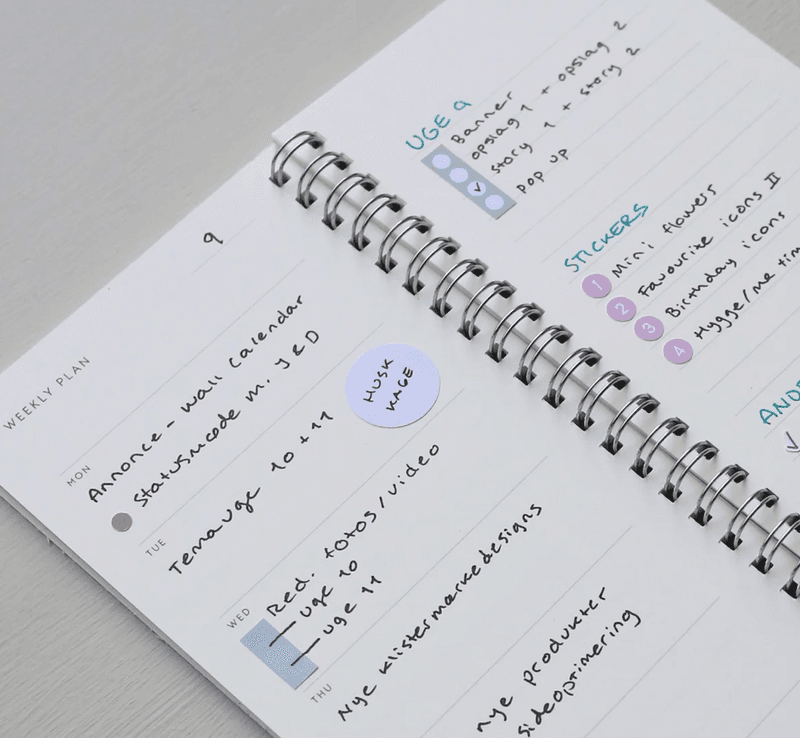 WEEKLY PLAN
9
MON
Annonce - Wall Calendar
Statusmøde m. J & D
HUSK
KAGE
TUE
Temauge 10 + 11
WED
Red. fotos / video
uge 10
uge 11
THU
Nye klistermærkedesigns
nye produkter
sideoptimering
UGE 9
Banner
opslag 1 + opslag 2
✓ story 1 + story 2
pop up
STICKERS
1 Mini flowers
2 Favourite icons II
3 Birthday icons
4 Hygge/me tim
AND
✓